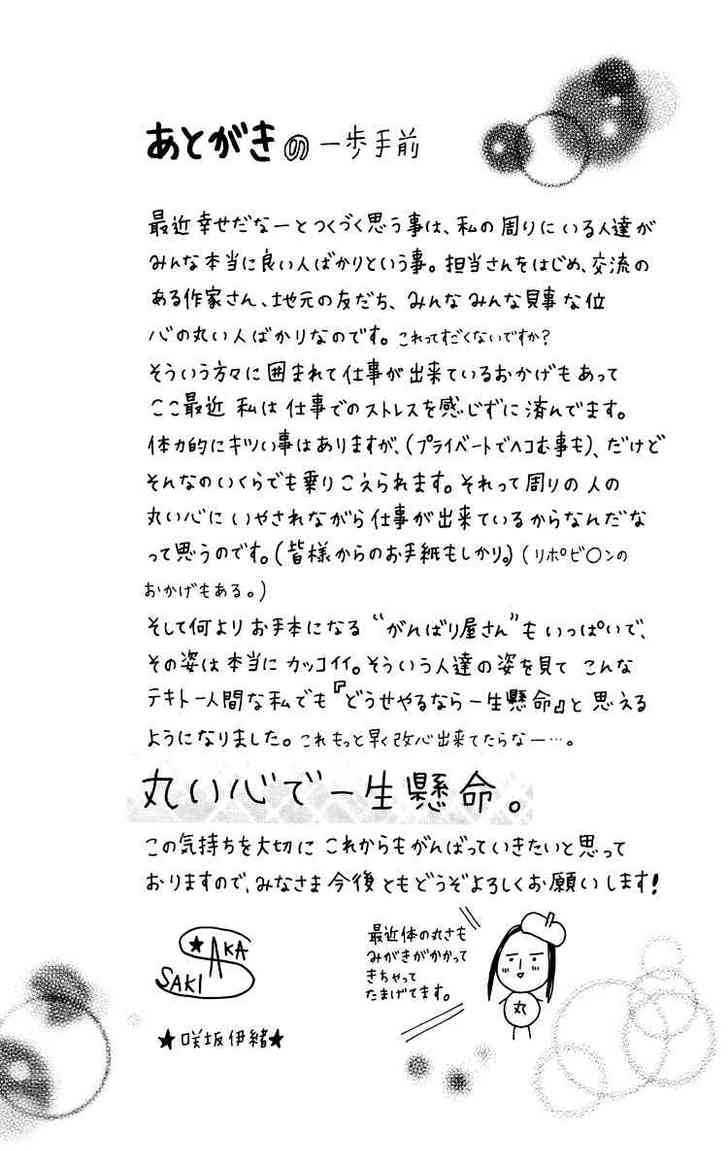 あとがきの一歩手前
最近幸せだなーとつくづく思う事は、私の周りにいる人達が
みんな本当に良い人ばかりという事。担当さんをはじめ、交流の
ある作家さん、地元の友だち、みんなみんな見事な位
心の丸い人ばかりなのです。これってすごくないですか?
そういう方々に囲まれて仕事が出来ているおかげもあって
ここ最近私は仕事でのストレスを感じずに済んでます。
体力的にキツい事はありますが、(プライベートでヘコむ事も)、だけど
そんなのいくらでも乗りこえられます。それって周りの人の
丸い心にいやされながら仕事が出来ているからなんだな
って思うのです。(皆様からのお手紙もしかり。)(リポビ〇ンの
おかげもある。)
そして何よりお手本になる“がんばり屋さん”もいっぱいで、
その姿は本当にカッコイイ。そういう人達の姿を見てこんな
テキトー人間な私でも『どうせやるなら一生懸命』と思える
ようになりました。これもっと早く改心出来てたらなー…。
丸い心で一生懸命。
この気持ちを大切にこれからもがんばっていきたいと思って
おりますので、みなさま今後ともどうぞよろしくお願いします!
★AKA
SAKI
S
★咲坂伊緒★
最近体の丸さも
みがきがかかって
きちゃって
たまげてます。
丸